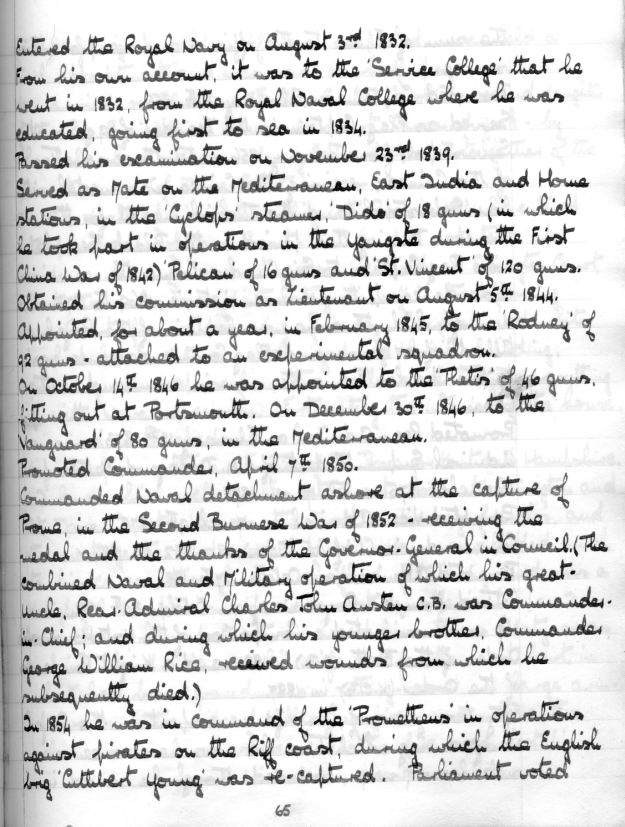 Entered the Royal Navy on August 3rd 1832.
From his own account, it was to the 'Service College' that he
went in 1832, from the Royal Naval College where he was
educated, going first to sea in 1834.
Passed his examination on November 23rd 1839.
Served as Mate on the Mediterranean, East India and Home
stations, in the 'Cyclops' steamer, 'Dido' of 18 guns (in which
he took part in operations in the Yangste during the First
China War of 1842) 'Pelican' of 16 guns and 'St. Vincent' of 120 guns.
Obtained his commission as Lieutenant on August 5th 1844.
Appointed, for about a year, in February 1845, to the 'Rodney' of
92 guns - attached to an experimental squadron.
On October 14th 1846 he was appointed to the 'Thetis' of 46 guns,
fitting out at Portsmouth. On December 30th 1846, to the
'Vanguard' of 80 guns, in the Mediterranean.
Promoted Commander, April 7th 1850.
Commanded Naval detachment ashore at the capture of
Prome, in the Second Burmese War of 1852 - receiving the
medal and the thanks of the Governor-General in Council. (The
combined Naval and Military operation of which his great-
uncle, Rear-Admiral Charles John Austen C.B. was Commander-
in-Chief; and during which his younger brother, Commander
George William Rice, received wounds from which he
subsequently died.)
In 1854 he was in command of the 'Prometheus' in operations
against pirates on the Riff coast, during which the English
brig 'Cuthbert Young' was re-captured. Parliament voted
65